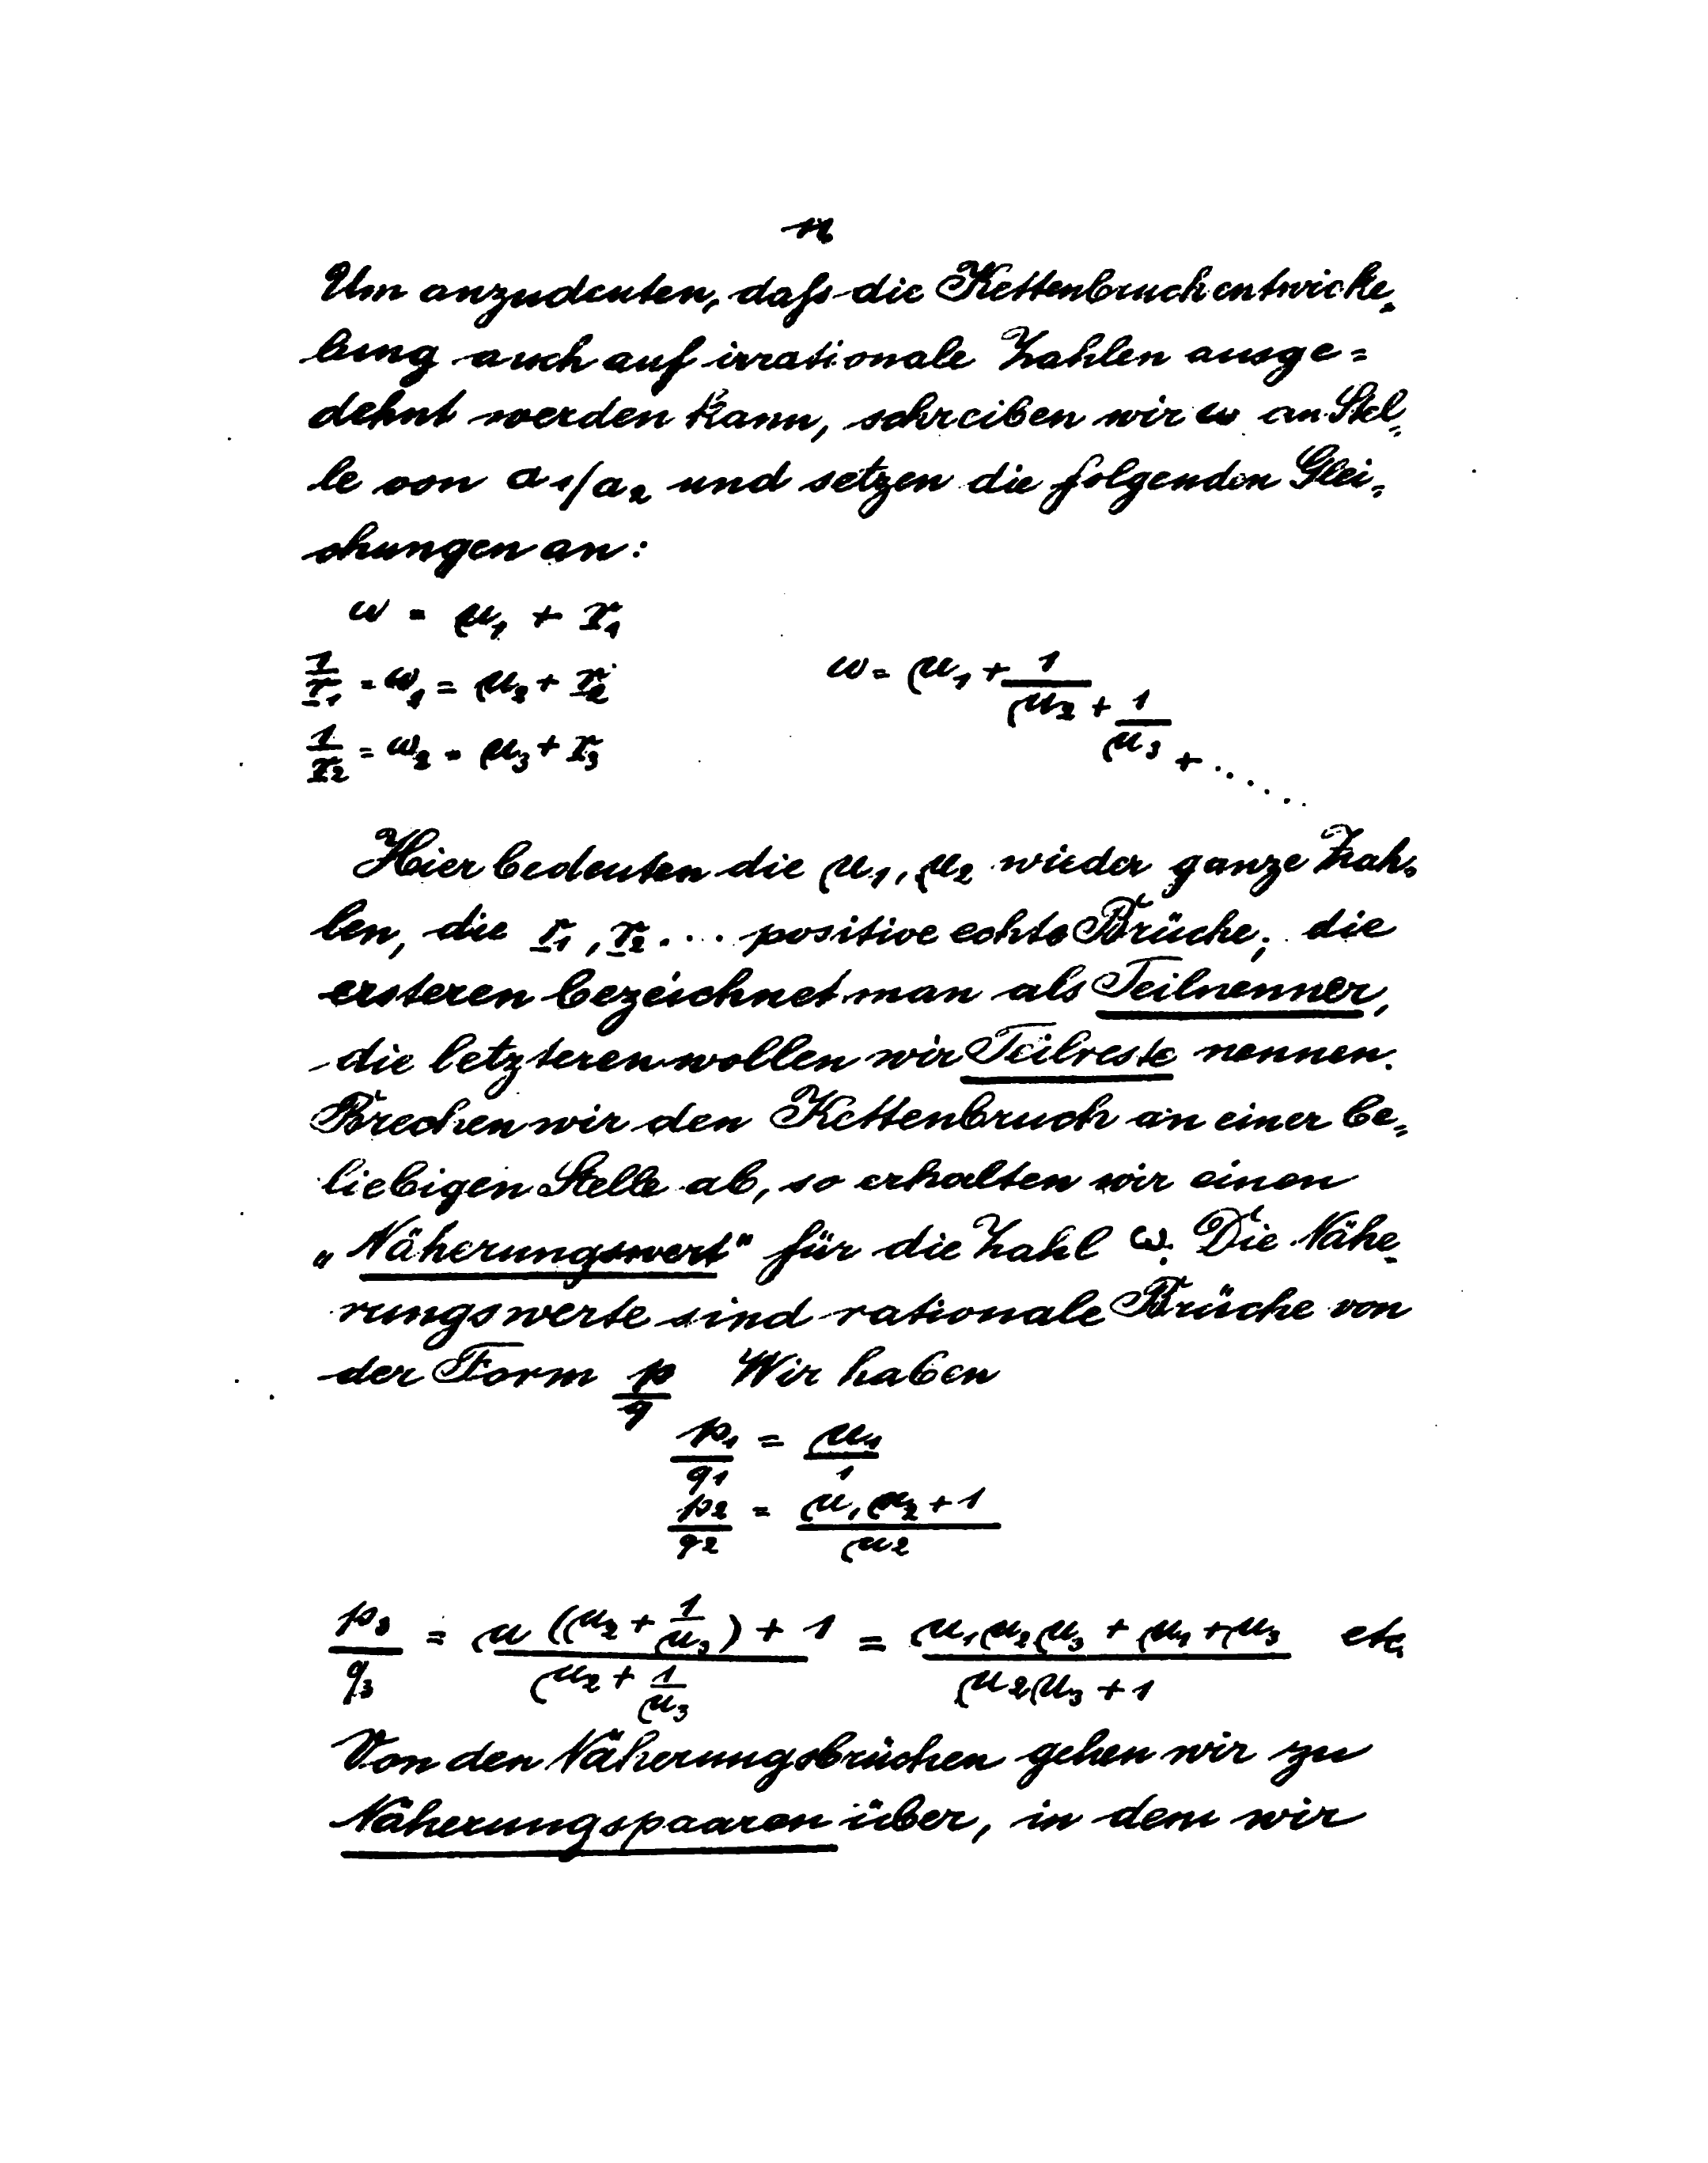 Um anzudeuten, daß die Kettenbruchentwicke=
lung auch auf irrationale Zahlen ausge=
dehnt werden kann, schreiben wir ω an Stel=
le von a₁/a₂ und setzen die folgenden Glei=
chungen an:
ω = μ₁ + r₁
1/r₁ = ω₁ = μ₂ + r₂      ω = μ₁ + 1/(μ₂ + 1/(μ₃ + ......
1/r₂ = ω₂ = μ₃ + r₃
Hier bedeuten die μ₁, μ₂ wieder ganze Zah=
len, die r₁, r₂.... positive echte Brüche; die
ersteren bezeichnet man als Teilnenner,
die letzteren wollen wir Teilreste nennen.
Brechen wir den Kettenbruch an einer be=
liebigen Stelle ab, so erhalten wir einen
„Näherungswert" für die Zahl ω. Die Nähe=
rungswerte sind rationale Brüche von
der Form p/q Wir haben
p₁/q₁ = μ₁/1
p₂/q₂ = (μ₁μ₂+1)/μ₂
p₃/q₃ = (μ(μ₂ + 1/μ₃) + 1)/(μ₂ + 1/μ₃) = (μ₁μ₂μ₃ + μ₁ + μ₃)/(μ₂μ₃ + 1) etc.
Von den Näherungsbrüchen gehen wir zu
Näherungspaaren über, in dem wir